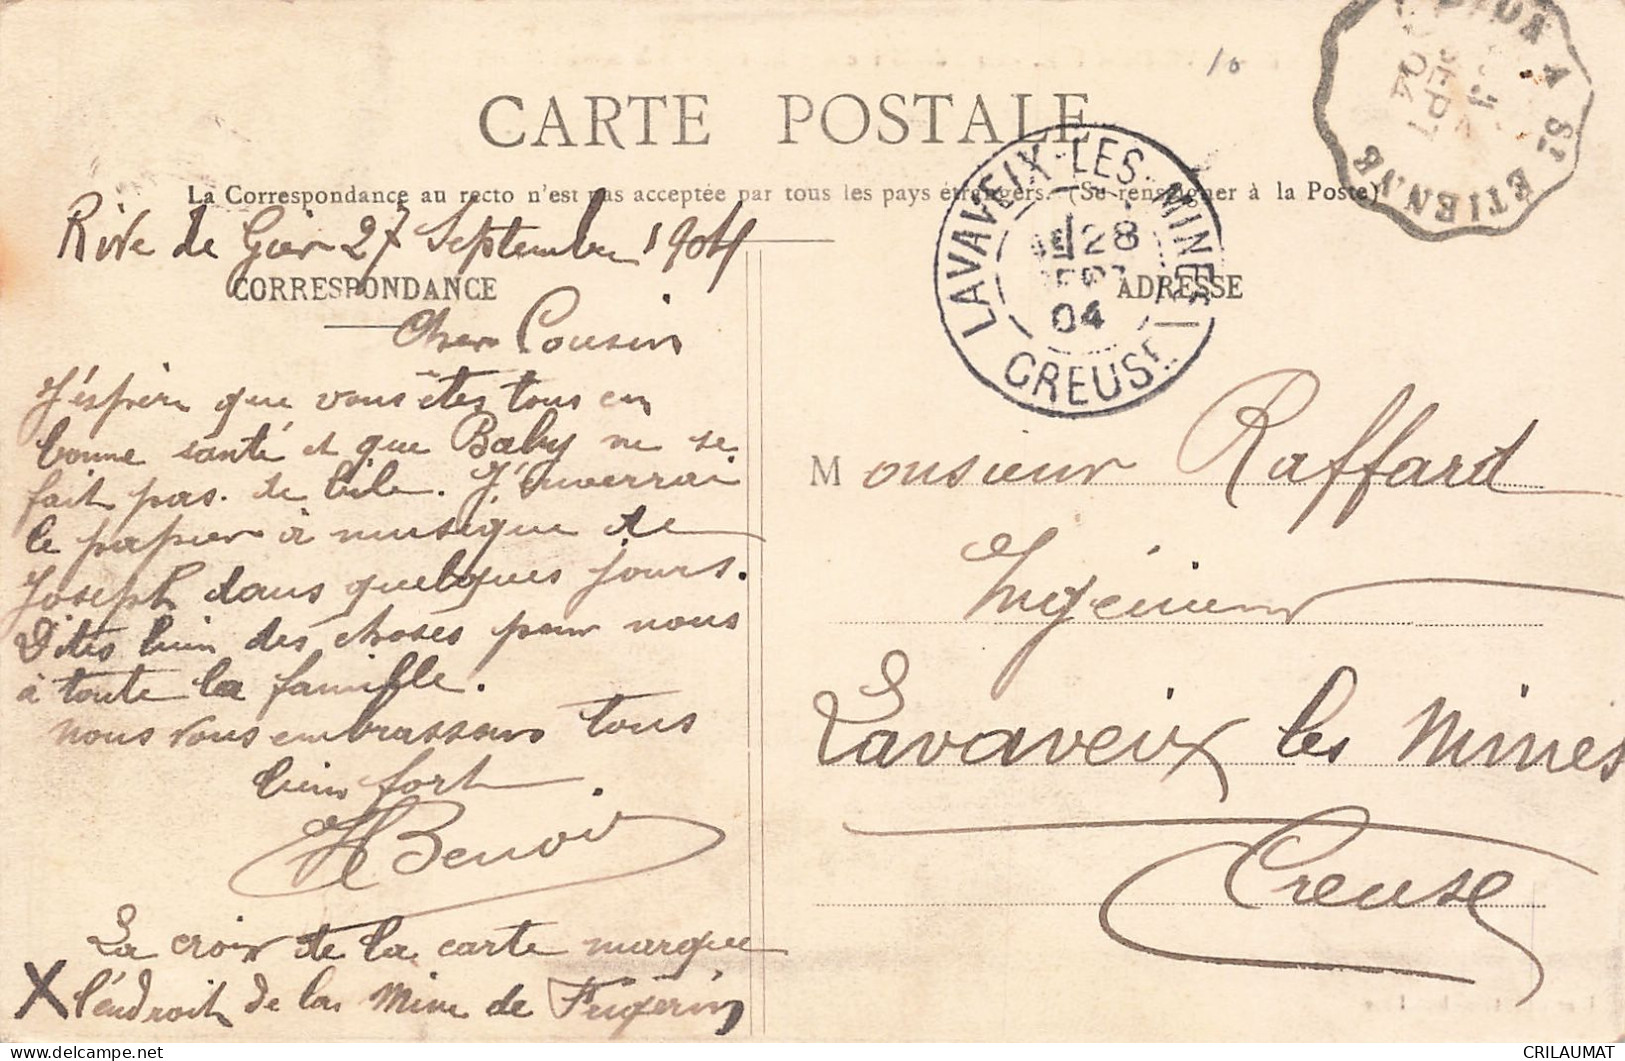 10
CARTE POSTALE
La Correspondance au recto n'est pas acceptée par tous les pays étrangers. (Se renseigner à la Poste)
LYON A St ETIENNE
SEPT
04
LAVAVEIX-LES-MINES
28
SEPT
04
CREUSE
Rive de Gier 27 Septembre 1904
CORRESPONDANCE
Cher Cousin
J'espère que vous êtes tous en
bonne santé et que Baby ne se
fait pas de bile. J'enverrai
le papier à musique de
Joseph dans quelques jours.
Dites bien des choses pour nous
à toute la famille.
nous vous embrassons tous
bien fort.
Benoi
La croix de la carte marque
X l'endroit de la Mine de Frigerin
ADRESSE
Monsieur Raffard
Ingénieur
Lavaveix les Mines
Creuse
CRILAUMAT